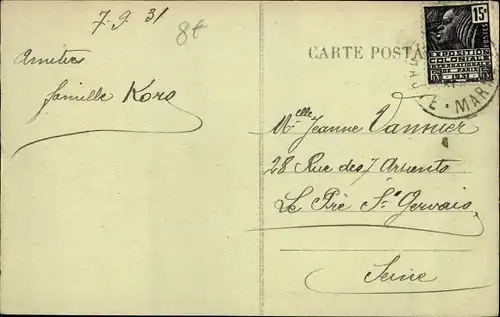 7-9-31
8€
Amitiés
famille Kors
CARTE POSTA
15c
POSTES
EXPOSITION
COLONIALE
INTERNATIONALE
DE PARIS
1931
E * MAR
Melle Jeanne Vannier
28 Rue des 7 Arpents
Le Pré St Gervais
Seine